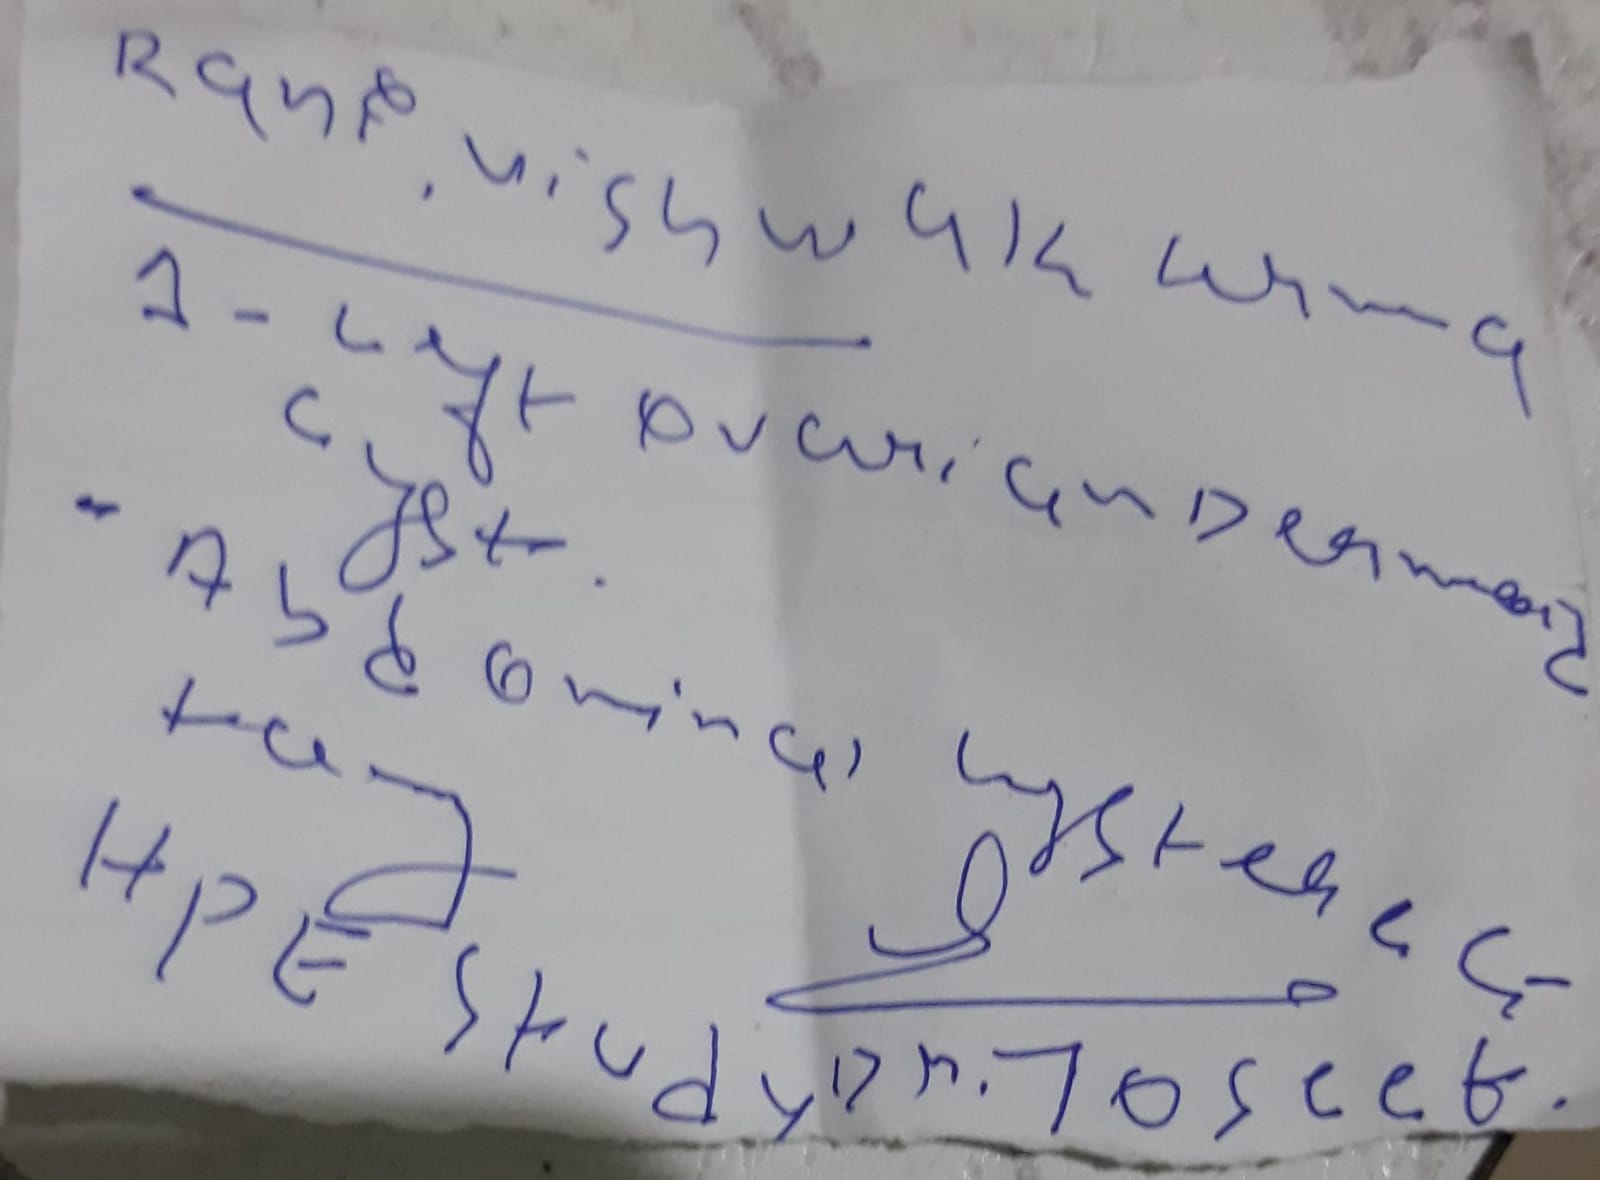 Rani. vishwakarma
1 - Left ovarian Dermoid
cyst.
- Abdominal hysterec
tomy
HPE study Dr. Joseeb.